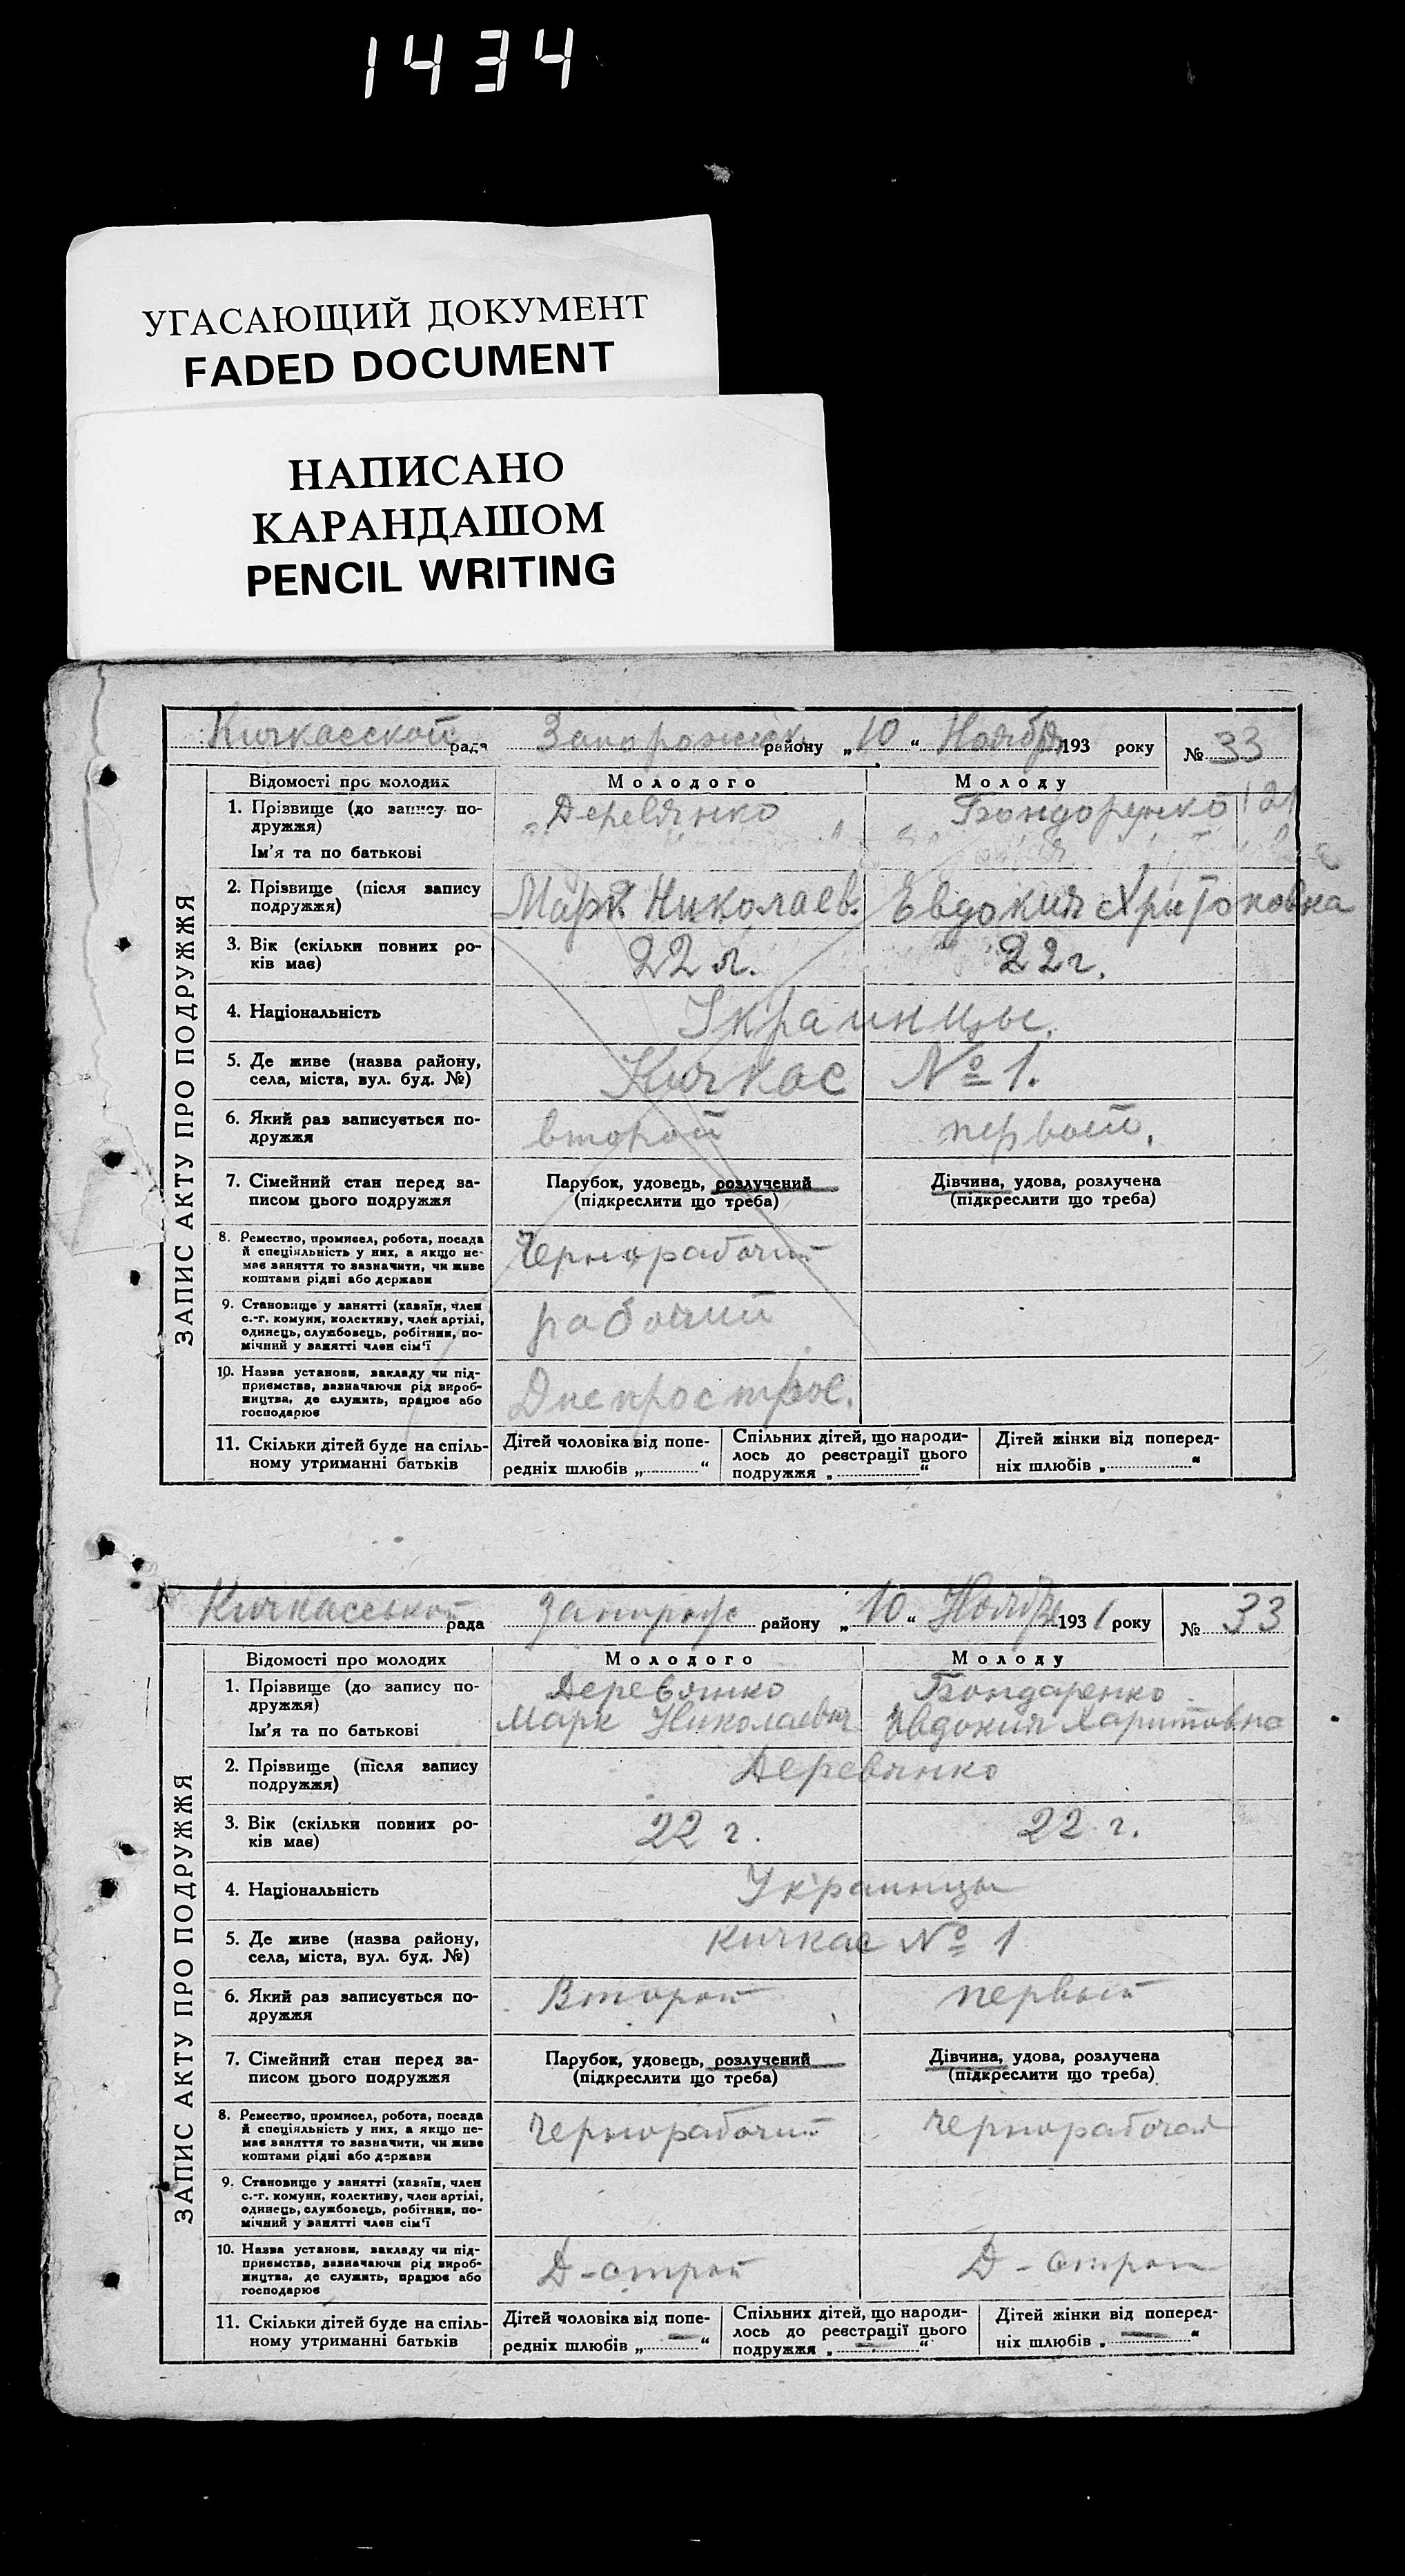 1434
УГАСАЮЩИЙ ДОКУМЕНТ
FADED DOCUMENT
НАПИСАНО
КАРАНДАШОМ
PENCIL WRITING
Кичкасской рада Запорожск. району „10“ Ноября 193 року № 33
ЗАПИС АКТУ ПРО ПОДРУЖЖЯ
Відомості про молодих Молодого Молоду
1. Прізвище (до запису по-
дружжя)
Ім'я та по батькові
Деревянко Бондоренко
2. Прізвище (після запису
подружжя)
Марк Николаев. Евдокия Хритоновна
3. Вік (скільки повних ро-
ків має)
22 г. 22 г.
4. Національність
Украинцы.
5. Де живе (назва району,
села, міста, вул. буд. №)
Кичкас № 1.
6. Який раз записується по-
дружжя
второй первый.
7. Сімейний стан перед за-
писом цього подружжя
Парубок, удовець, розлучений
(підкреслити що треба)
Дівчина, удова, розлучена
(підкреслити що треба)
8. Ремество, промисел, робота, посада
й спеціяльність у них, а якщо не-
має заняття то зазначити, чи живе
коштами рідні або держави
Чернорабочий
9. Становище у занятті (хазяїн, член
с.-г. комуни, колективу, член артілі,
одинець, службовець, робітник, по-
мічний у занятті член сім'ї
рабочий
10. Назва установи, закладу чи під-
приємства, зазначаючи рід вироб-
ництва, де служить, працює або
господарює
Днепрострое.
11. Скільки дітей буде на спіль-
ному утриманні батьків
Дітей чоловіка від попе-
редніх шлюбів „ “
Спільних дітей, що народи-
лось до реєстрації цього
подружжя „ “
Дітей жінки від поперед-
ніх шлюбів „ “
Кичкасской рада Запорож району „10“ Ноября 1931 року № 33
ЗАПИС АКТУ ПРО ПОДРУЖЖЯ
Відомості про молодих Молодого Молоду
1. Прізвище (до запису по-
дружжя)
Ім'я та по батькові
Деревянко Бондаренко
Марк Николаевич Евдокия Харитовна
2. Прізвище (після запису
подружжя)
Деревянко
3. Вік (скільки повних ро-
ків має)
22 г. 22 г.
4. Національність
Украинцы
5. Де живе (назва району,
села, міста, вул. буд. №)
Кичкас № 1
6. Який раз записується по-
дружжя
Второй первый
7. Сімейний стан перед за-
писом цього подружжя
Парубок, удовець, розлучений
(підкреслити що треба)
Дівчина, удова, розлучена
(підкреслити що треба)
8. Ремество, промисел, робота, посада
й спеціяльність у них, а якщо не-
має заняття то зазначити, чи живе
коштами рідні або держави
чернорабочий чернорабочая
9. Становище у занятті (хазяїн, член
с.-г. комуни, колективу, член артілі,
одинець, службовець, робітник, по-
мічний у занятті член сім'ї
10. Назва установи, закладу чи під-
приємства, зазначаючи рід вироб-
ництва, де служить, працює або
господарює
Д-строй Д-строй
11. Скільки дітей буде на спіль-
ному утриманні батьків
Дітей чоловіка від попе-
редніх шлюбів „ — “
Спільних дітей, що народи-
лось до реєстрації цього
подружжя „ — “
Дітей жінки від поперед-
ніх шлюбів „ — “